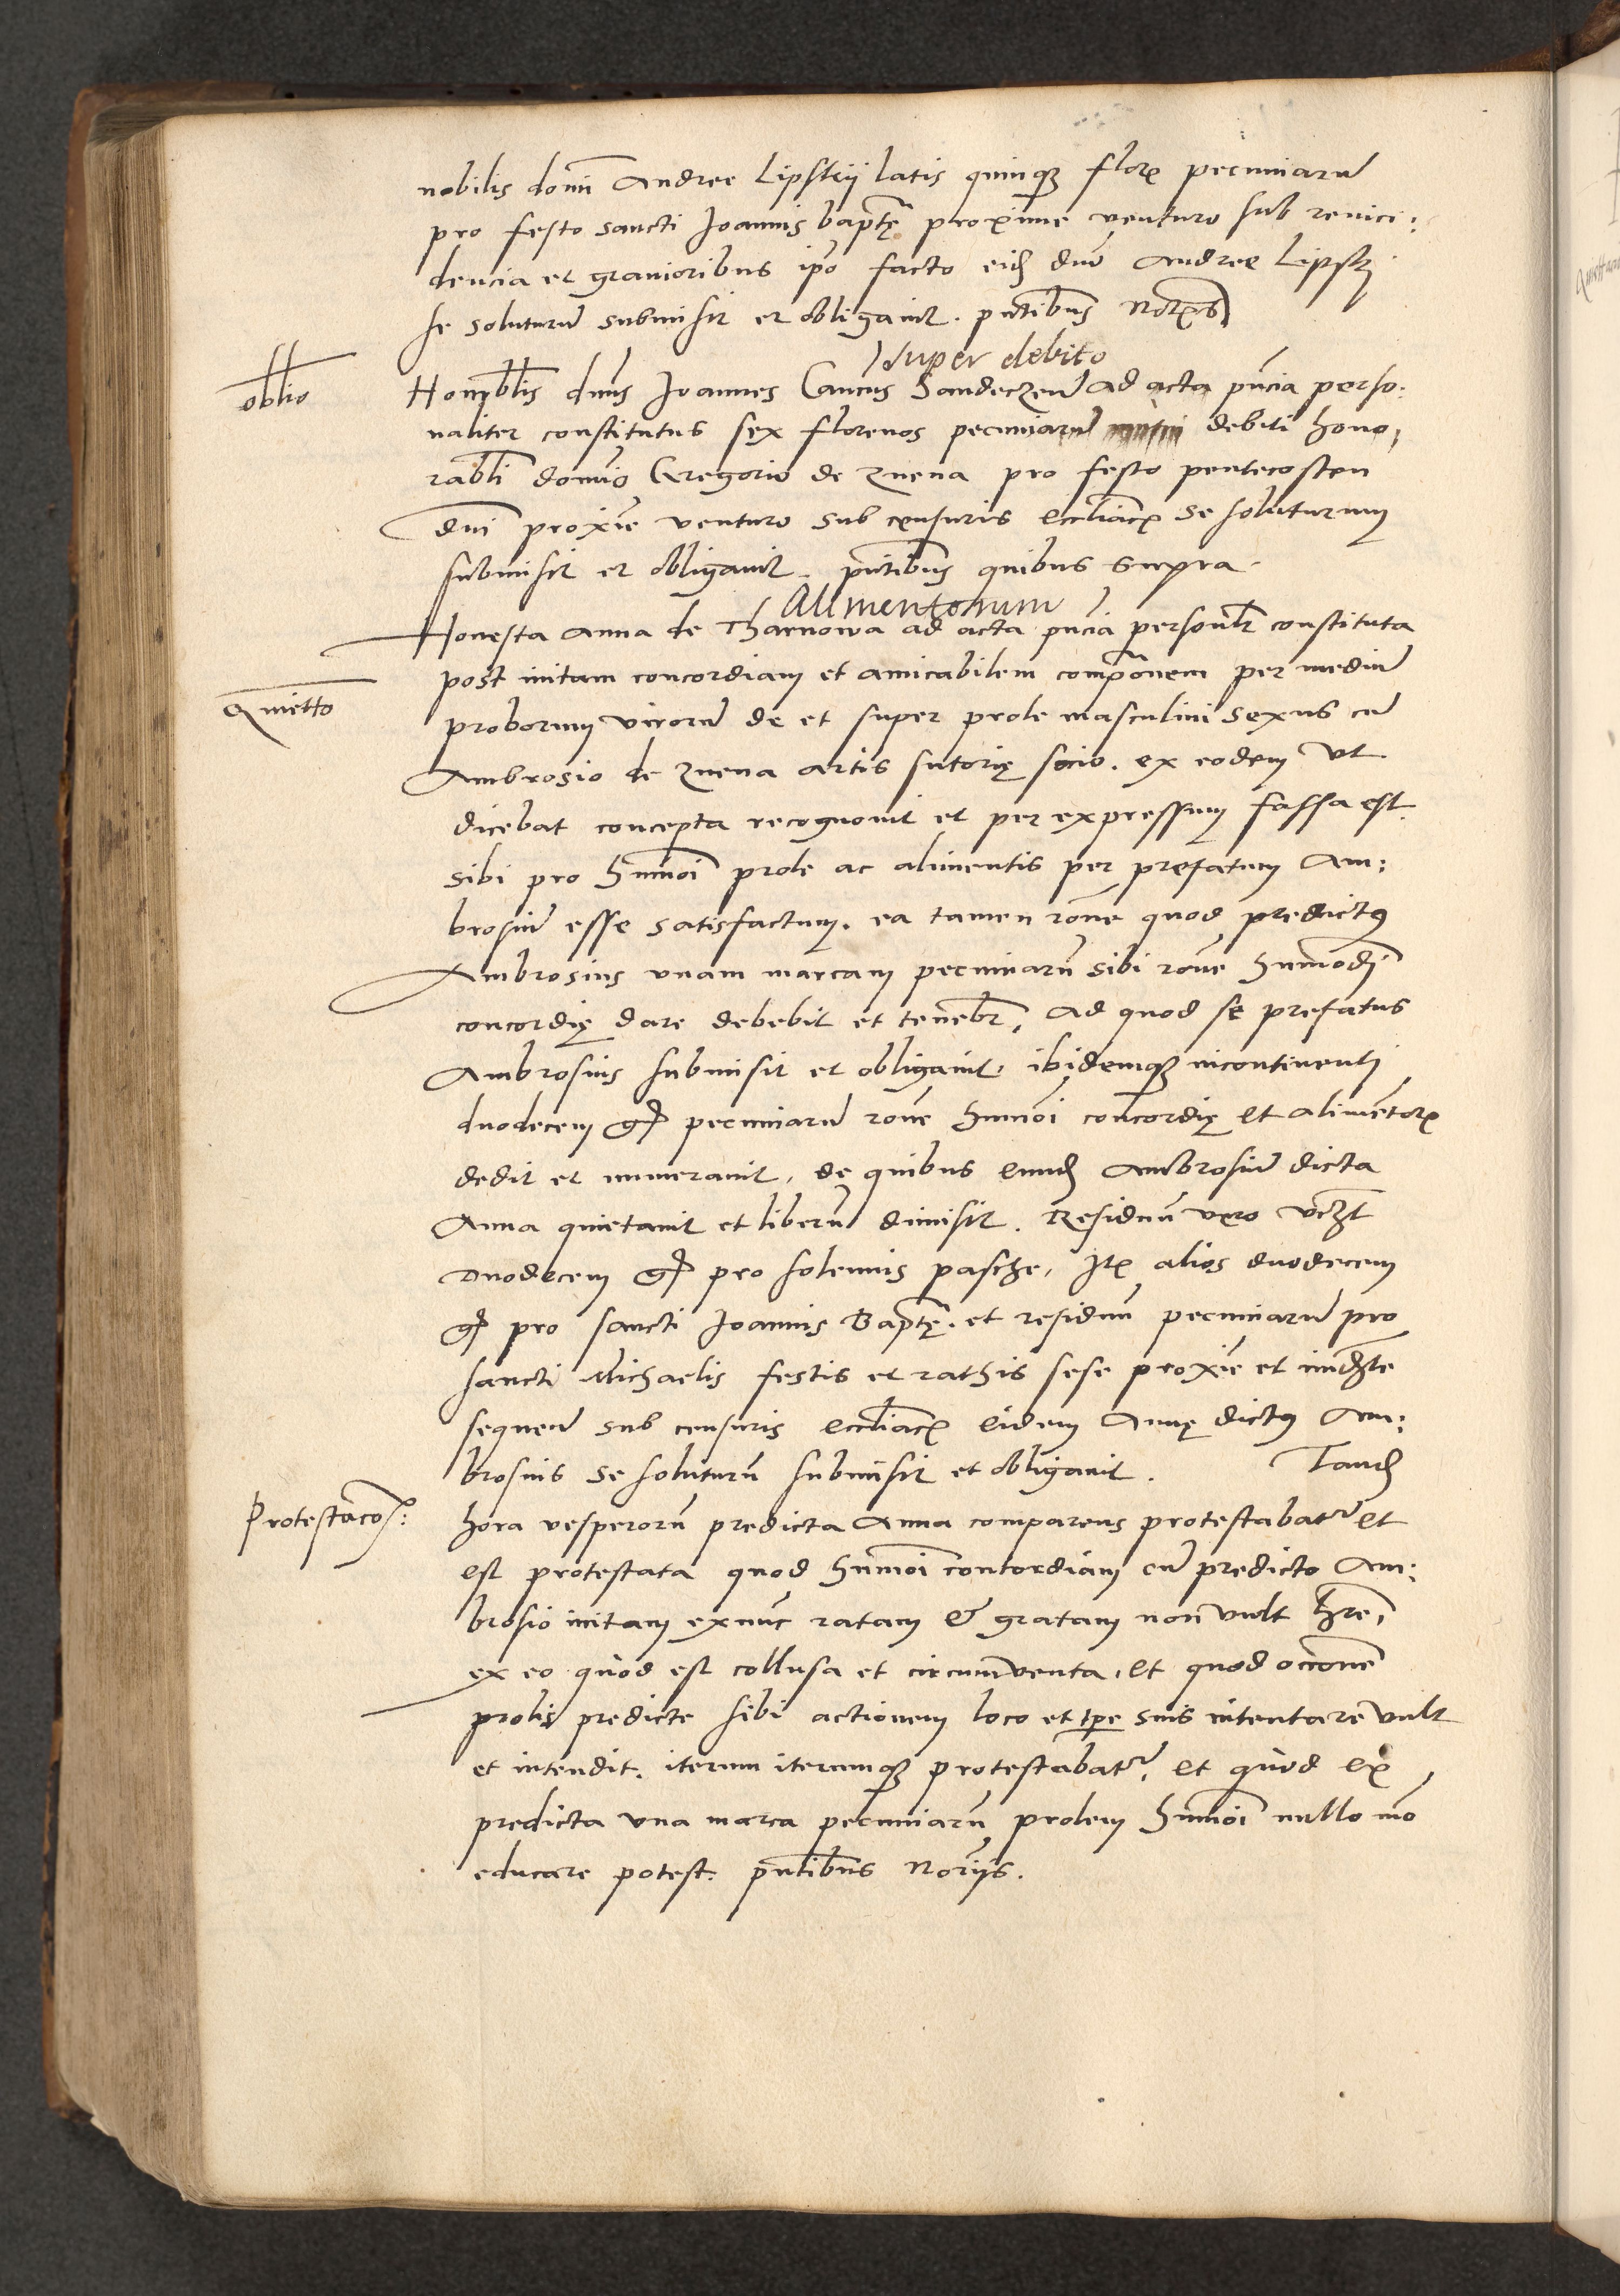 nobilis domi Andree Lipskij latis quinqз florꝭ pecuniarū
pro festo sancti Joannis baptę proxime venturo sub renici:
dencia et grauioribus ipō facto eidꝭ dnō Andree Lipskj
se soluturū submisit et obligauit. pntibus Notꝭ
Super debito
oblio
Honorablis dnus Joannes Cancus Sandeczen ad acta pncia perso:
naliter constitutus sex florenos pecuniarū debiti hono:
rabli domino Gregorio de Znena pro festo pentecosten
dni proxie venturo sub censuris ecclīacꝭ se soluturum
submisit et obligauit. pntibus quibus supra.
Alimentorum
Honesta Anna de Tharnowa ad acta pncia personlr constituta
post initam concordiam et amicabilem comp̄onem per mediū
Quietto
proborum virorū de et super prole masculini sexus cū
Ambrosio de Znena artis sutorię socio. ex eodem vt
dicebat concepta recognouit et per expressum fassa est.
sibi pro hmnōi prole ac alimentis per prefatum Am:
brosiū esse satisfactum. ea tamen rone quod predictꝰ
Ambrosius vnam marcam pecuniarū sibi rone hmnōdj
concordię dare debebit et tenebr. Ad quod se prefatus
Ambrosius submisit et obligauit. ibidemqз incontinenti
duodecem gꝭ pecuniarū rone hmnōi concordię et alimentorꝭ
dedit et numerauit, de quibus eundꝭ Ambrosiū dicta
Anna quietauit et liberū dimisit. Residuū vero vczt
Duodecem gꝭ pro solennis pasche, Itꝭ alios duodecem
gꝭ pro sancti Joannis Baptę. et residuū pecuniarū pro
sancti Michaelis festis et rathis sese proxie et imdte
sequen sub censuris ecclīacꝭ eidem Annę dictꝰ Am:
brosius se soluturū submisit et obligauit. Tandꝭ
Protestacoꝭ:
hora vesperorū predicta Anna comparens protestabatr et
est protestata quod hmnōi concordiam cū predicto Am:
brosio initam exnunc ratam & gratam non vult hre,
ex eo quod est collusa et circumuenta, et quod occone
prolis predicte sibi actionem loco et tpe suis intentare vult
et intendit. iterum iterumqз protestabatr, et quod ex
predicta vna marca pecuniarū prolem hmnōi nullo mō
educare potest. pntibus Norijs.